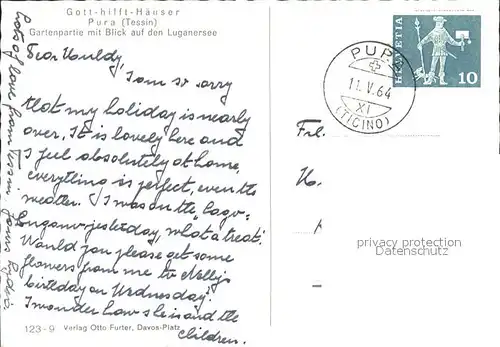 Gott-hilft-Häuser
Pura (Tessin)
Gartenpartie mit Blick auf den Luganersee
Dear
I am so sorry
that my holiday is nearly
over. It is lovely here and
I feel absolutely at home,
everything is perfect, even the
weather. I was on the "Lago-
Lugano" yesterday, what a treat!
Would you please get some
flowers from me to Nelly's
birthday on Wednesday?
I wonder how she is and the
children.
lots of love from Tessin. Your
123-9 Verlag Otto Furter, Davos-Platz
HELVETIA
10
PURA
11.V.64
XI
(TICINO)
Frl.
privacy protection
Datenschutz